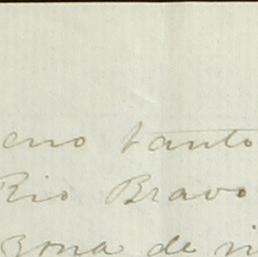 eno tanto
Rio Bravo
zona de